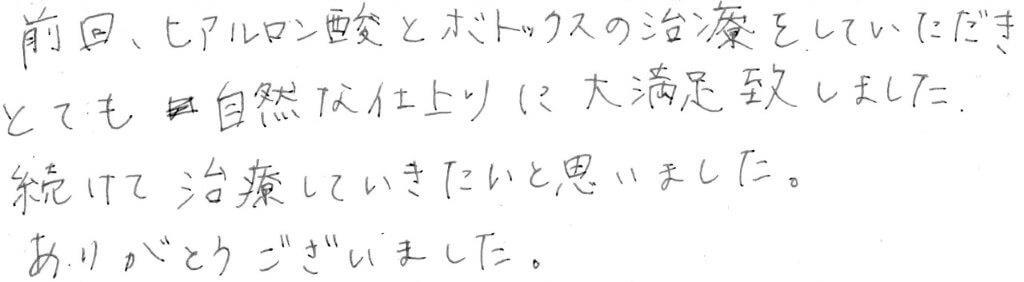 前回、ヒアルロン酸とボトックスの治療をしていただき
とても自然な仕上りに大満足致しました。
続けて治療していきたいと思いました。
ありがとうございました。